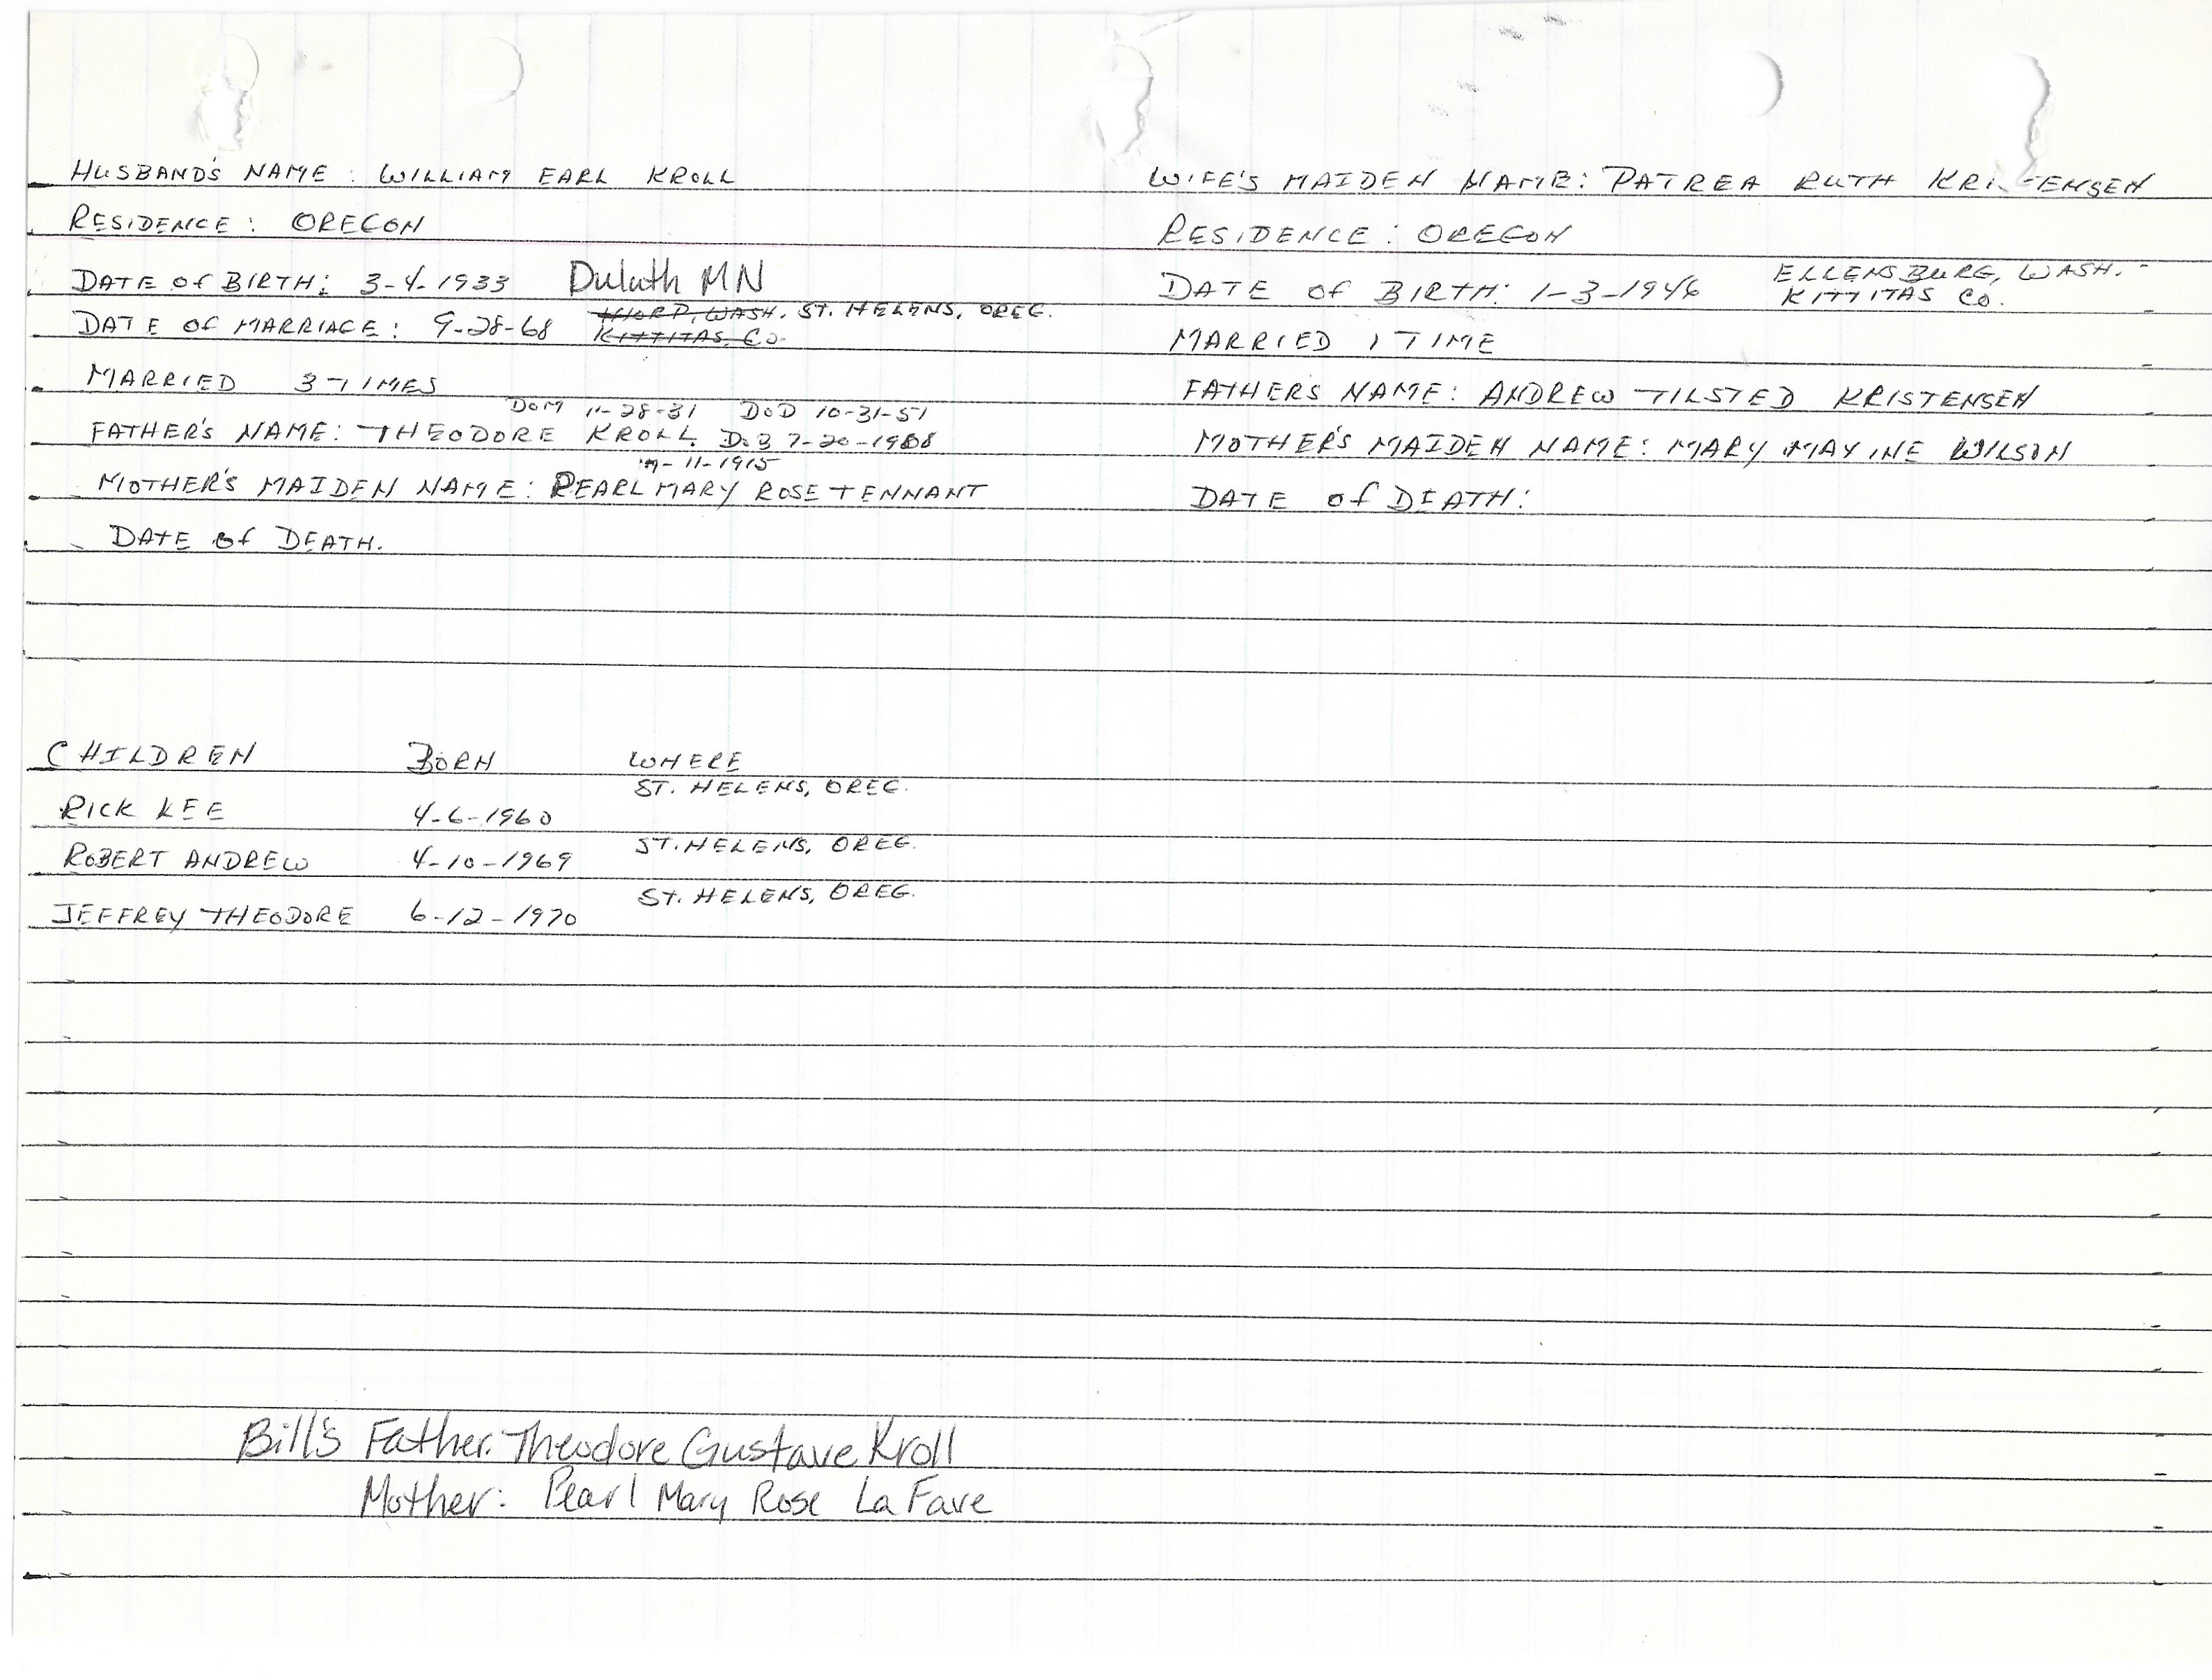 HUSBAND'S NAME : WILLIAM EARL KROLL
RESIDENCE : OREGON
DATE OF BIRTH: 3-4-1933 Duluth MN
THORP, WASH. ST. HELENS, OREG.
DATE OF MARRIAGE : 9-28-68 KITTITAS CO.
MARRIED 3 TIMES
DOM 11-28-31 DOD 10-31-51
FATHER'S NAME: THEODORE KROLL DOB 7-20-1908
11-1915
MOTHER'S MAIDEN NAME: PEARL MARY ROSE TENNANT
DATE OF DEATH.
WIFE'S MAIDEN NAME: PATREA RUTH KRI ENSEN
RESIDENCE : OREGON
ELLENSBURG, WASH.
DATE OF BIRTH: 1-3-1946 KITTITAS CO.
MARRIED 1 TIME
FATHER'S NAME: ANDREW TILSTED KRISTENSEN
MOTHER'S MAIDEN NAME: MARY MAXINE WILSON
DATE OF DEATH:
CHILDREN BORN WHERE
ST. HELENS, OREG.
RICK LEE 4-6-1960
ST. HELENS, OREG.
ROBERT ANDREW 4-10-1969
ST. HELENS, OREG.
JEFFREY THEODORE 6-12-1970
Bill's Father. Theodore Gustave Kroll
Mother: Pearl Mary Rose LaFave